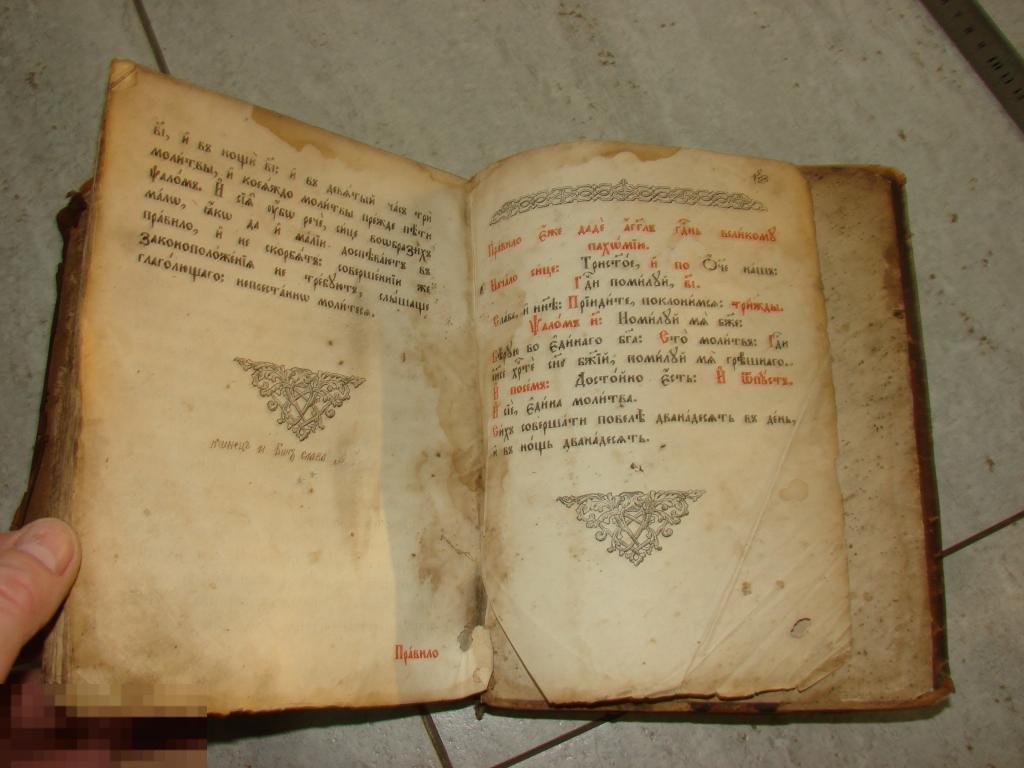 в҃і, и҆ въ нощѝ в҃і: и҆ въ девѧ́тый ча́съ трѝ
моли́твы, и҆ коеѧ́ждо моли́твы пре́жде пѣ́ти
ѱало́мъ. И҆ сїѧ̑ ᲂу҆́бѡ рече́, си́це воѡбрази́хъ
ма́лѡ, ꙗ҆́кѡ да и҆ ма́лїи доспѣва́ютъ въ
пра́вило, и҆ не скорбѧ́тъ: соверше́ннїи же
законоположе́нїѧ не тре́буютъ, слы́шаще
глаго́лющаго: непреста́ннѡ моли́тесѧ.
конецъ и Богу слава
Пра́вило
Пра́вило є҆́же дадѐ а҆́гг҃лъ гд҇нь вели́кому
пахѡ́мїю.
Нача́ло си́це: Трист҃о́е, и҆ по Ѻ҆́че на́шъ:
Гд҇и поми́луй, в҃і.
Сла́ва, и҆ нн҃ѣ: Прїиди́те, поклони́мсѧ: три́жды.
Ѱало́мъ н҃: Поми́луй мѧ̀ бж҃е:
Вѣ́рую во є҆ди́наго бг҃а: Сто̀ моли́твъ: Гд҇и
і҆и҃се хрⷭ҇тѐ сн҃е бж҃їй, поми́луй мѧ̀ грѣ́шнаго.
И҆ посе́мъ: Досто́йно є҆́сть: И҆ ѿпу́стъ.
И҆ сїѐ, є҆ди́на моли́тва.
Си́хъ соверша́ти повелѣ̀ двана́десѧть въ де́нь,
и҆ въ но́щь двана́десѧть.